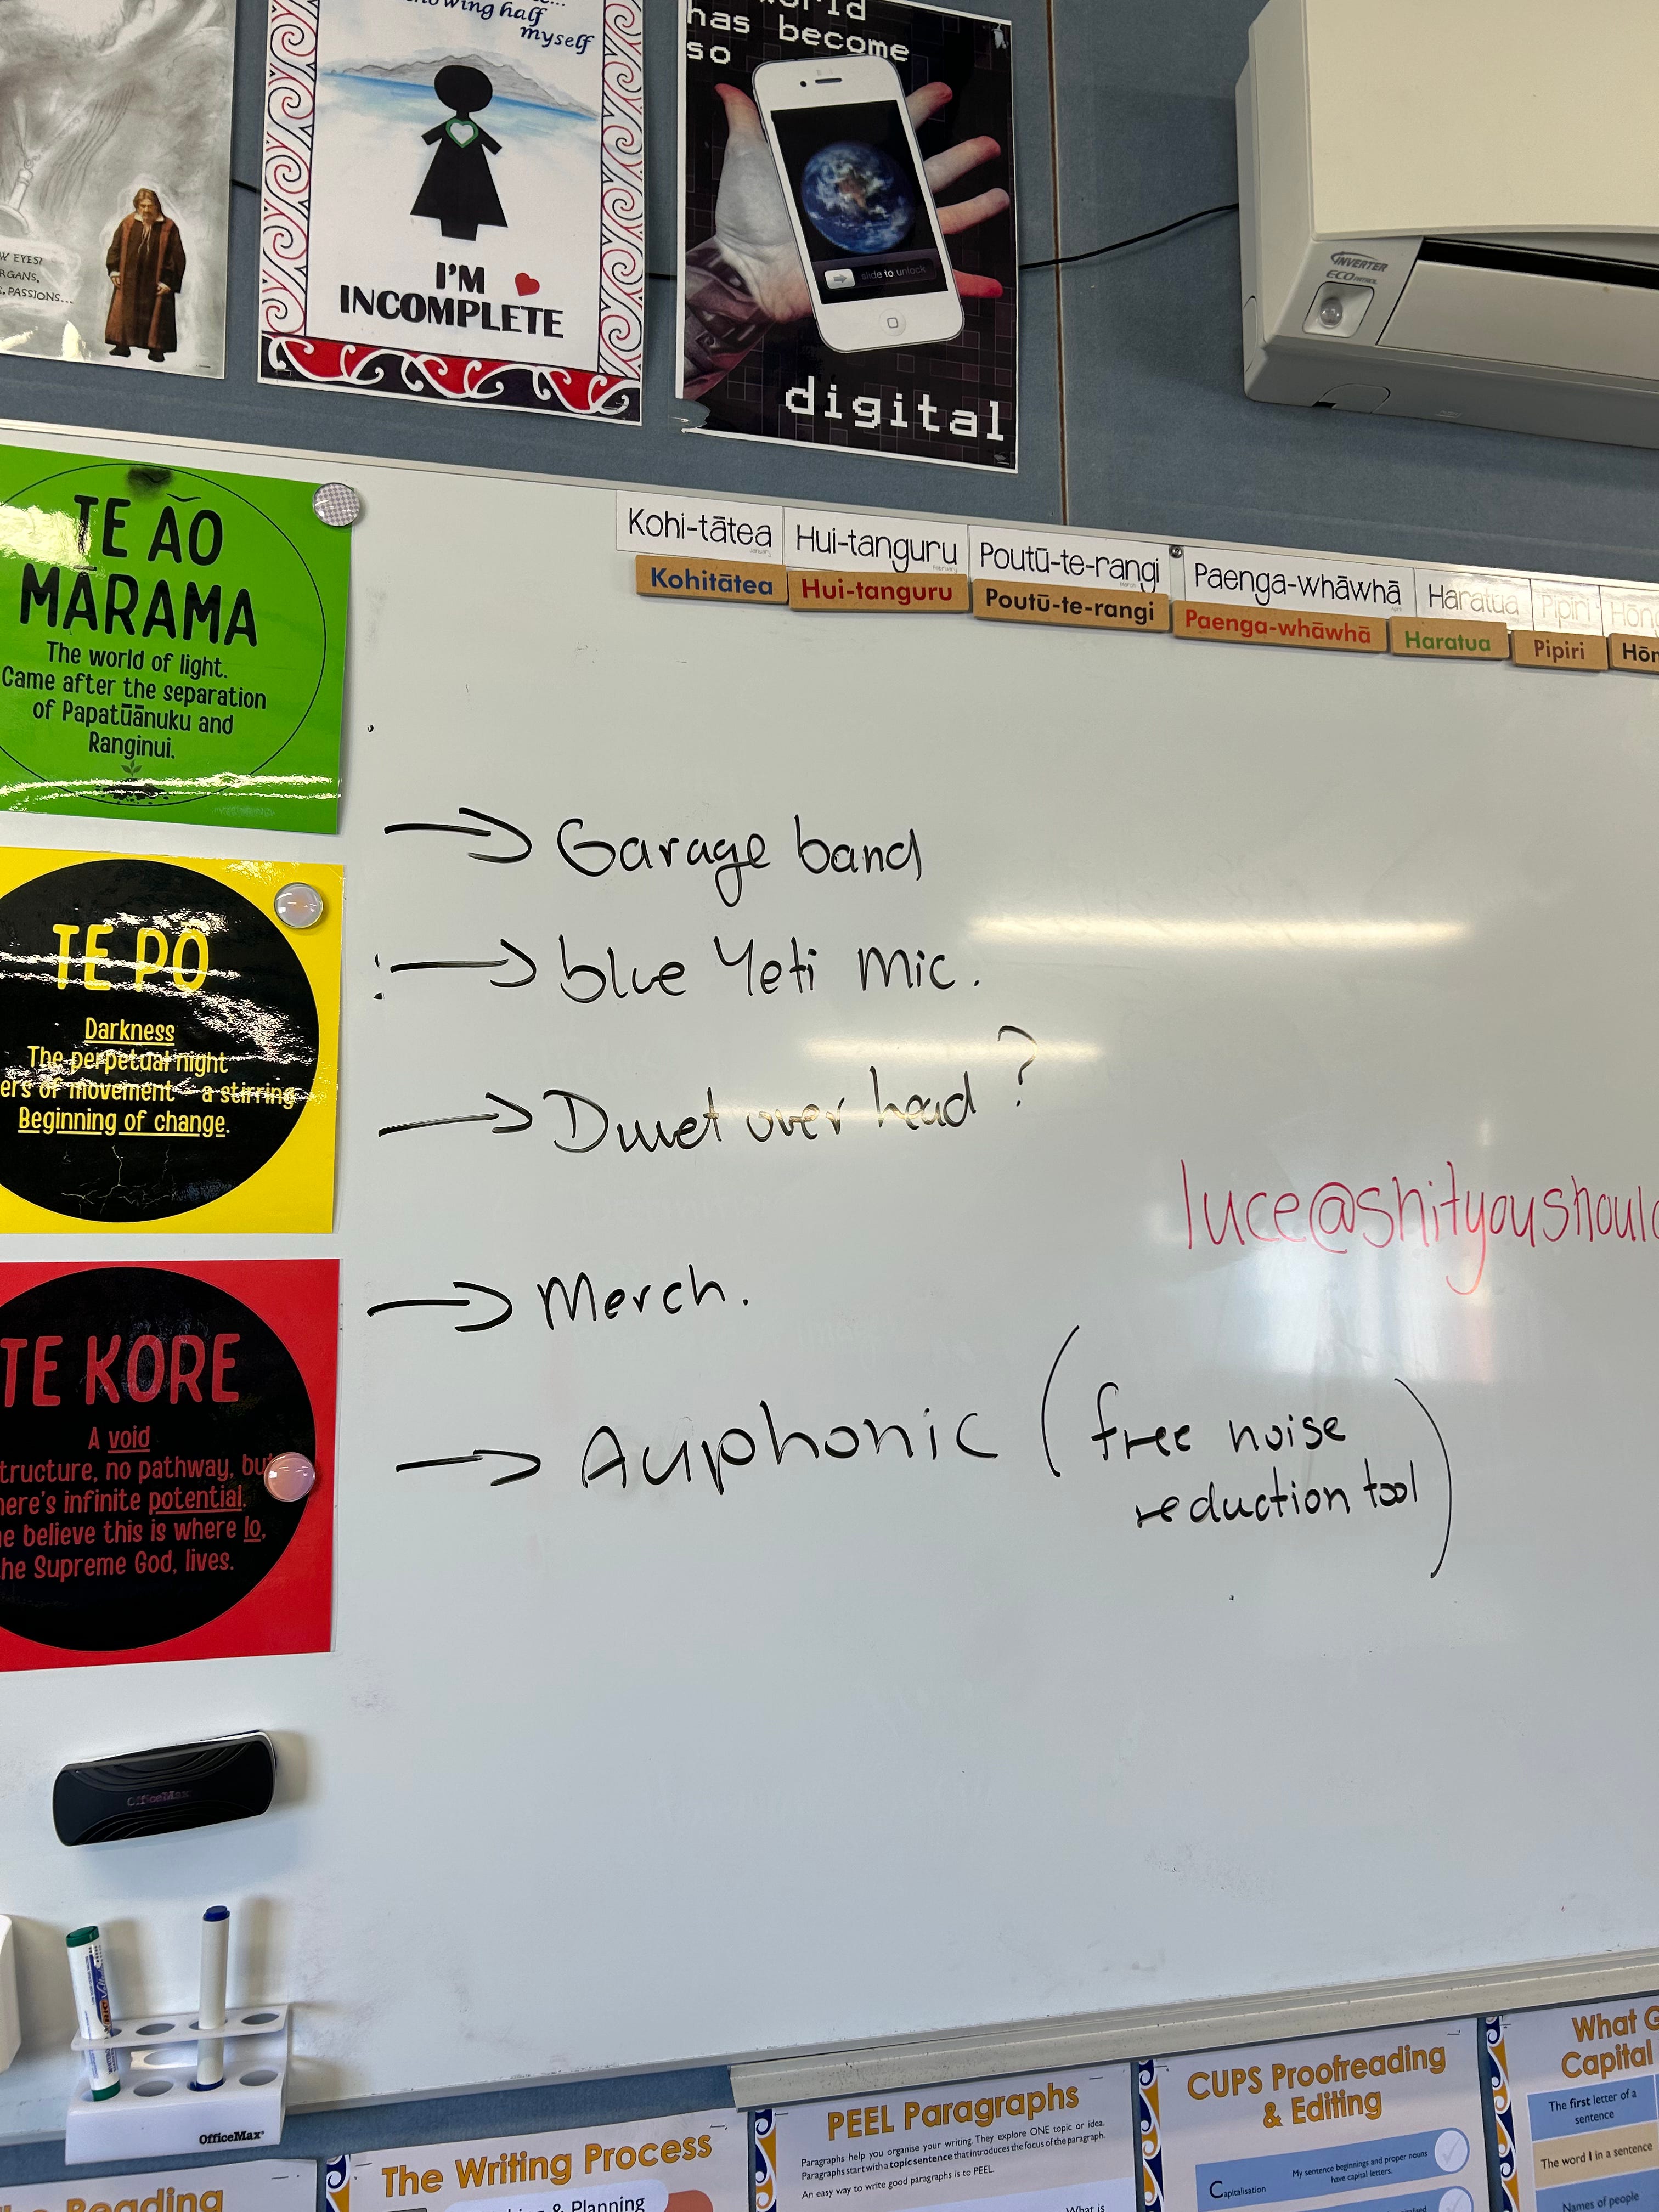 owing half
myself
I'M
INCOMPLETE
W EYES?
RGANS,
PASSIONS...
has become
so
slide to unlock
digital
INVERTER
ECO
TE AO
MĀRAMA
The world of light.
Came after the separation
of Papatūānuku and
Ranginui.
Kohi-tātea
Hui-tanguru
Poutū-te-rangi
Paenga-whāwhā
Haratua
Pipiri
Hōng
Kohitātea
Hui-tanguru
Poutū-te-rangi
Paenga-whāwhā
Haratua
Pipiri
Hōn
TE PŌ
Darkness
The perpetual night
ers of movement - a stirring
Beginning of change.
TE KORE
A void
tructure, no pathway, but
here's infinite potential.
e believe this is where Io,
he Supreme God, lives.
→ Garage band
→ blue Yeti Mic.
→ Duvet over head?
→ Merch.
→ Auphonic (free noise
reduction tool)
luce@shityoushould
OfficeMax
OfficeMax
Reading
The Writing Process
& Planning
PEEL Paragraphs
Paragraphs help you organise your writing. They explore ONE topic or idea.
Paragraphs start with a topic sentence that introduces the focus of the paragraph.
An easy way to write good paragraphs is to PEEL.
What is
CUPS Proofreading
& Editing
My sentence beginnings and proper nouns
have capital letters.
Capitalisation
What G
Capital
The first letter of a
sentence
The word I in a sentence
Names of people